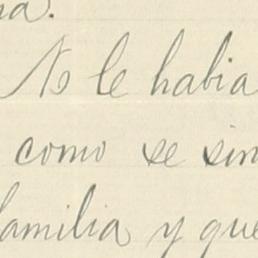 No le habia
como se
familia y que